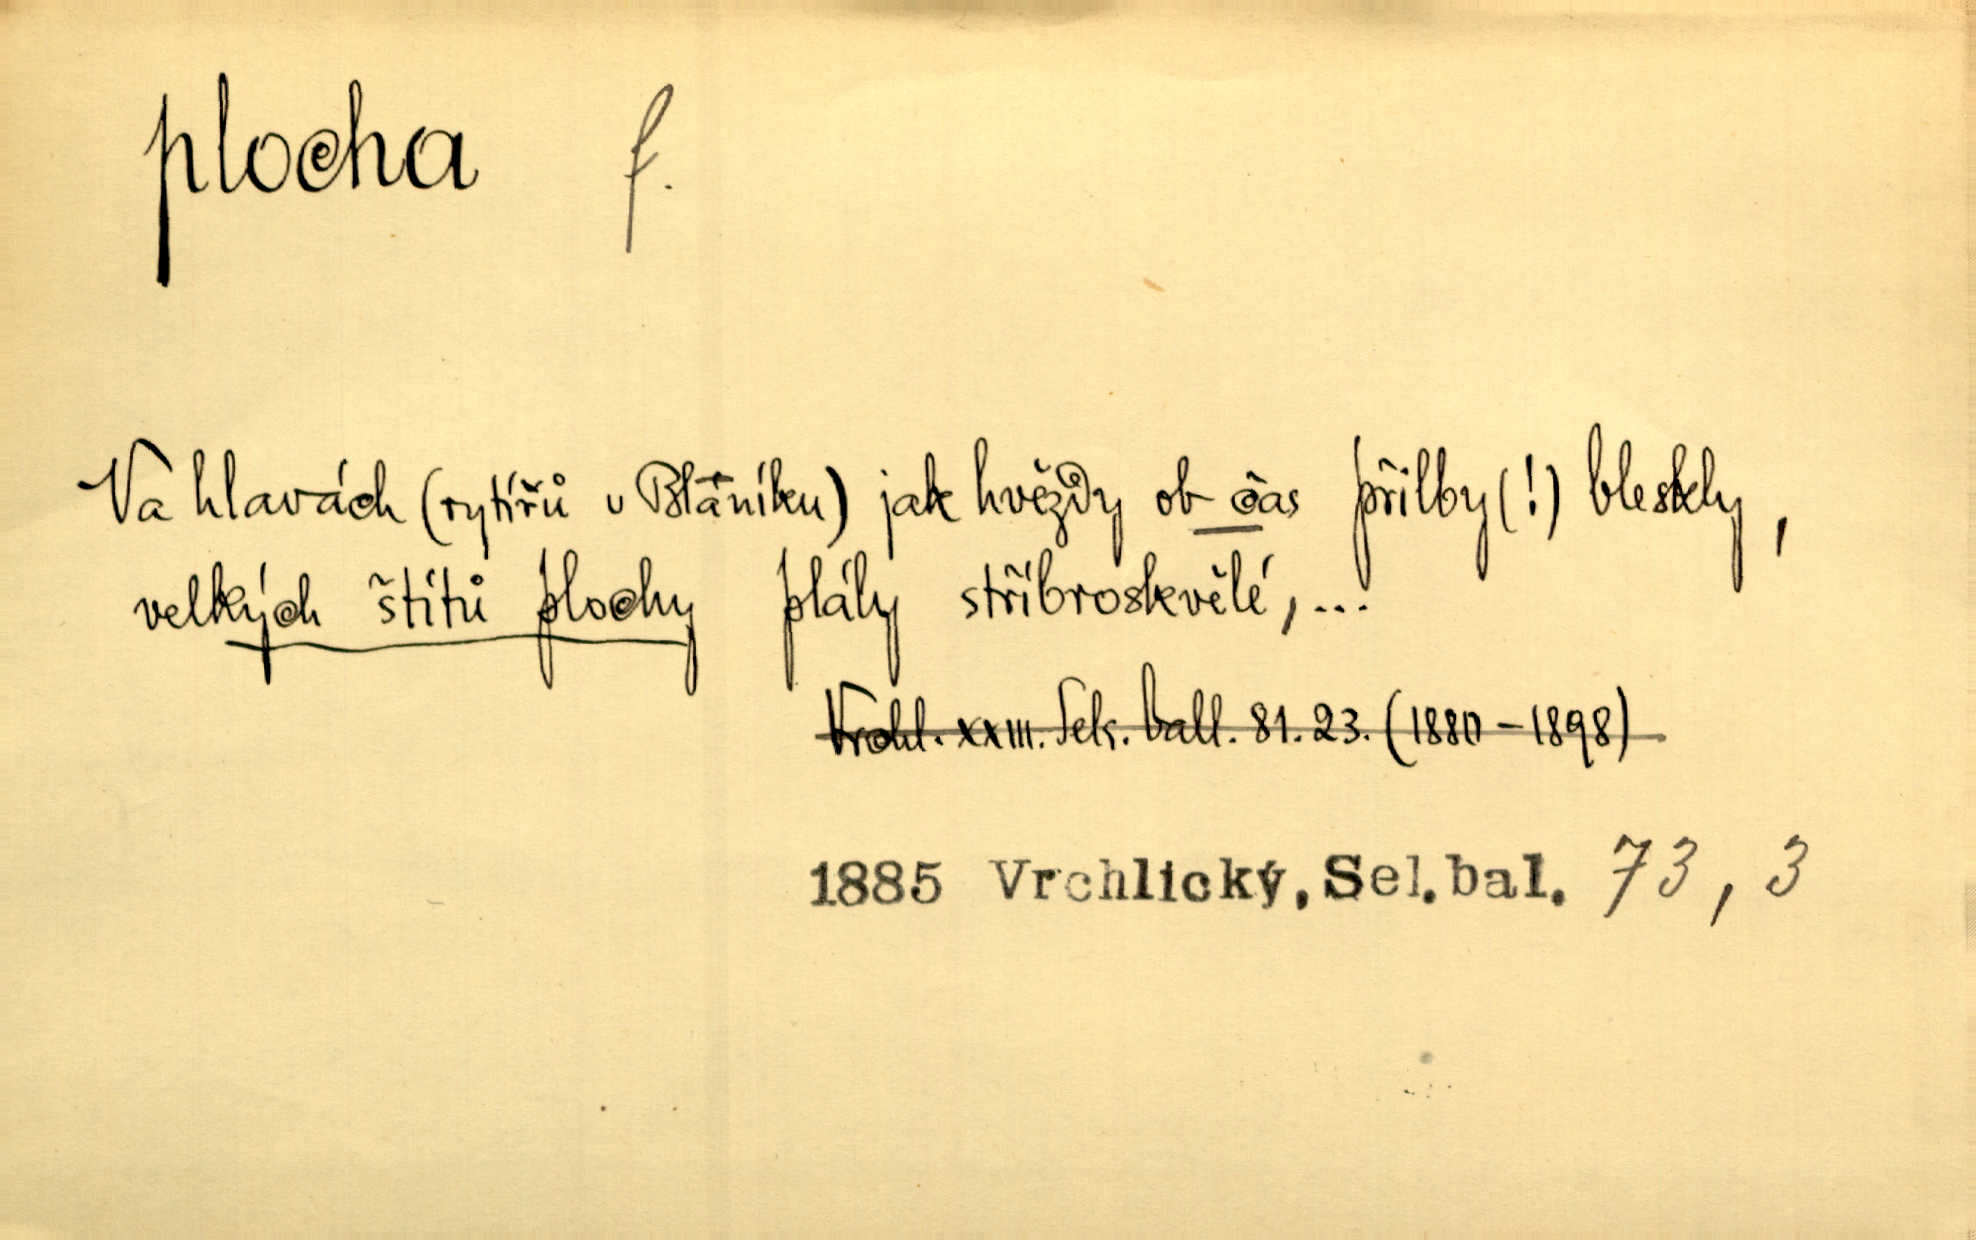 plocha f.
Na hlavách (rytířů v Blaníku) jak hvězdy ob čas přilby (!) bleskly,
velkých štítů plochy plály stříbroskvělé, ...
Vrchl. XXIII. Selk. ball. 81. 23. (1880 – 1898)
1885 Vrchlický, Sel. bal. 73, 3